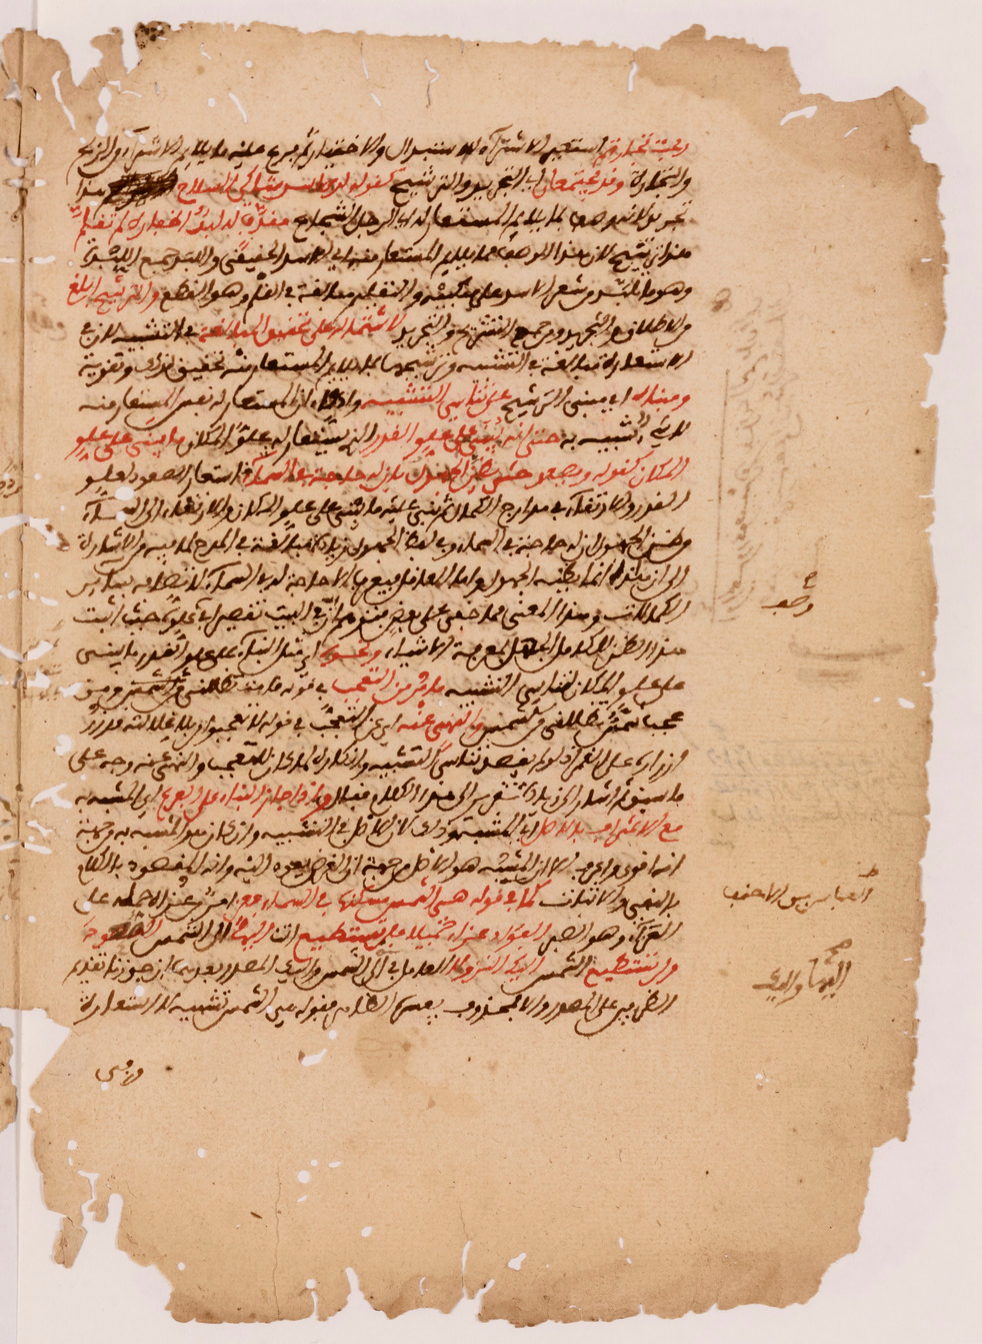 ربحت تجارتهم استعير الاشتراء للاستبدال والاختيار ثم فرع عليه ما يلايم الاشتراء من الربح
والتجارة وقد يجتمعان اي التجريد والترشيح كقوله لدى اسد شاكي السلاح هذا
تجريد لانه وصف بما يلايم المستعار له اي الرجل الشجاع مقذف له لبد اظفاره لم تقلم
هذا ترشيح لان هذا الوصف مما يلايم المستعار منه اي الاسد الحقيقي واللبد جمع لبدة
وهو ما تلبد من شعر الاسد على منكبيه والتقليم مبالغة في القلم وهو القطع والترشيح ابلغ
من الاطلاق والتجريد ومن جمع الترشيح والتجريد لاشتماله على تحقيق المبالغة في التشبيه لان في
الاستعارة مبالغة في التشبيه وترشيحها بما يلايم المستعار منه تحقيق لذلك وتقوية
ومبناه اي مبنى الترشيح على تناسي التشبيه وادعاء ان المستعار له نفس المستعار منه
لا شيء شبيه به حتى انه يبنى على علو القدر الذي يستعار له علو المكان ما يبنى على علو
المكان كقوله ويصعد حتى يظن الجهول بان له حاجة في السماء استعار الصعود لعلو
القدر والارتقاء في مدارج الكمال ثم بنى عليه ما يبنى على علو المكان والارتقاء الى السماء
وظن الجهول ان له حاجة في السماء وفي لفظ الجهول زيادة مبالغة في المدح لما فيه من الاشارة
الى ان هذا انما يظنه الجهول واما العاقل فيعرف ان لا حاجة له في السماء لاتصافه بسائر
الكمالات وهذا المعنى مما خفي على بعضهم فتوهم ان في البيت تقصيرا في علوه حيث اثبت
هذا الظن للكامل الجهل بمعرفة الاشياء ونحوه اي مثل البناء على علو القدر ما يبنى
على علو المكان لتناسي التشبيه ما مر من التعجب في قوله قامت تظللني ومن
عجب شمس تظللني من الشمس والنهي عنه اي عن التعجب في قوله لا تعجبوا من بلى غلالته قد زر
ازراره على القمر اذ لو لم يقصد تناسي التشبيه وانكاره لما كان للتعجب والنهي عنه وجه على
ما سبق ثم اشار الى زيادة تقرير لهذا الكلام فقال واذا جاز البناء على الفرع اي المشبه به
مع الاعتراف بالاصل اي المشبه وذلك لان الاصل في التشبيه وان كان هو المشبه به من جهة
انه اقوى واعرف الا ان المشبه هو الاصل من جهة ان الغرض يعود اليه وانه المقصود بالكلام
بالنفي والاثبات كما في قوله هي الشمس مسكنها في السماء فعز امر من عزاه حمله على
العزاء وهو الصبر الفؤاد عزاء جميلا فلن تستطيع انت اليها اي الى الشمس الصعودا
ولن تستطيع الشمس اليك النزولا العامل في الى الشمس واليك المصدر بعدهما ان جوزنا تقديم
الظرف على المصدر والا فمحذوف يفسره الظاهر فقوله هي الشمس تشبيه لا استعارة
العباس بن الاحنف
اليها واليك